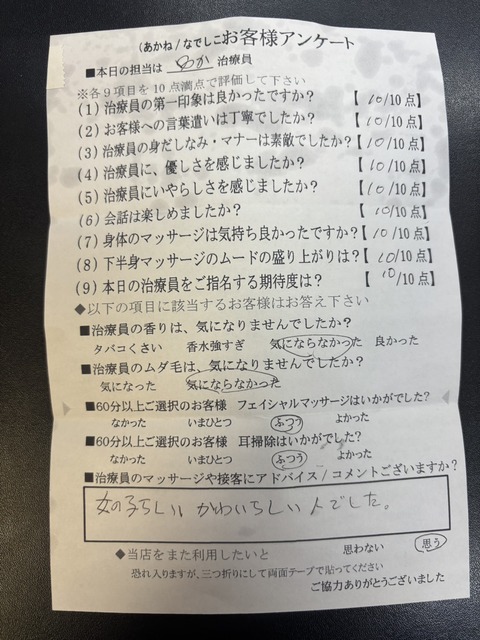 (あかね/なでしこお客様アンケート
■本日の担当は ゆか 治療員
※各9項目を10点満点で評価して下さい
(1) 治療員の第一印象は良かったですか? 【 10/10点】
(2) お客様への言葉遣いは丁寧でしたか? 【 10/10点】
(3) 治療員の身だしなみ・マナーは素敵でしたか?【 10/10点】
(4) 治療員に、優しさを感じましたか? 【 10/10点】
(5) 治療員にいやらしさを感じましたか? 【 10/10点】
(6) 会話は楽しめましたか? 【 10/10点】
(7) 身体のマッサージは気持ち良かったですか?【 10/10点】
(8) 下半身マッサージのムードの盛り上がりは?【 10/10点】
(9) 本日の治療員をご指名する期待度は? 【 10/10点】
◆以下の項目に該当するお客様はお答え下さい
■治療員の香りは、気になりませんでしたか?
タバコくさい 香水強すぎ 気にならなかった 良かった
■治療員のムダ毛は、気になりませんでしたか?
気になった 気にならなかった
■60分以上ご選択のお客様 フェイシャルマッサージはいかがでした?
なかった いまひとつ ふつう よかった
■60分以上ご選択のお客様 耳掃除はいかがでした?
なかった いまひとつ ふつう よかった
■治療員のマッサージや接客にアドバイス/コメントございますか?
女の子らしい かわいらしい人でした。
◆当店をまた利用したいと 思わない 思う
恐れ入りますが、三つ折りにして両面テープで貼ってください
ご協力ありがとうございました